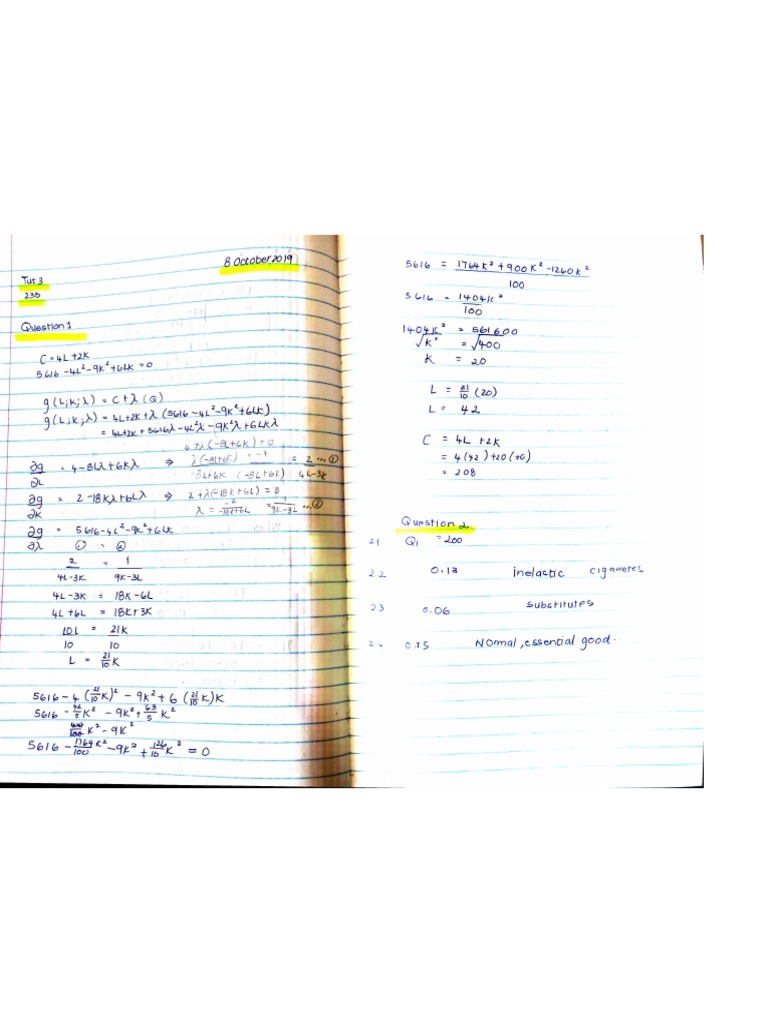 8 October 2019
Tut 3
235
Question 1
C = 4L + 2K
5616 - 4L² - 9K² + 6LK = 0
g(L;K;λ) = C + λ(Q)
g(L;K;λ) = 4L + 2K + λ(5616 - 4L² - 9K² + 6LK)
= 4L + 2K + 5616λ - 4L²λ - 9K²λ + 6LKλ
4 + λ(-8L + 6K) = 0
∂g/∂L = 4 - 8Lλ + 6Kλ ⇒ λ(-8L + 6K) = -4 = 2/(4L - 3K)
-8L + 6K (-8L + 6K)
∂g/∂K = 2 - 18Kλ + 6Lλ ⇒ 2 + λ(-18K + 6L) = 0
λ = -2/(-18K + 6L) = 1/(9K - 3L) ... ②
∂g/∂λ = 5616 - 4L² - 9K² + 6LK
① = ②
2/(4L - 3K) = 1/(9K - 3L)
4L - 3K = 18K - 6L
4L + 6L = 18K + 3K
10L/10 = 21K/10
L = 21/10 K
5616 - 4(21/10 K)² - 9K² + 6(21/10 K)K
5616 - 42/5 K² - 9K² + 63/5 K²
K² - 9K²
5616 - 1764K²/100 - 9K² + 126/10 K² = 0
5616 = (1764K² + 900K² - 1260K²)/100
5616 = 1404K²/100
1404K² = 561600
√K² = √400
K = 20
L = 21/10 (20)
L = 42
C = 4L + 2K
= 4(42) + 20
= 208
Question 2
2.1 Q₁ = 200
2.2 0.13 inelastic cigarretes
2.3 0.06 substitutes
0.75 Normal, essential good..